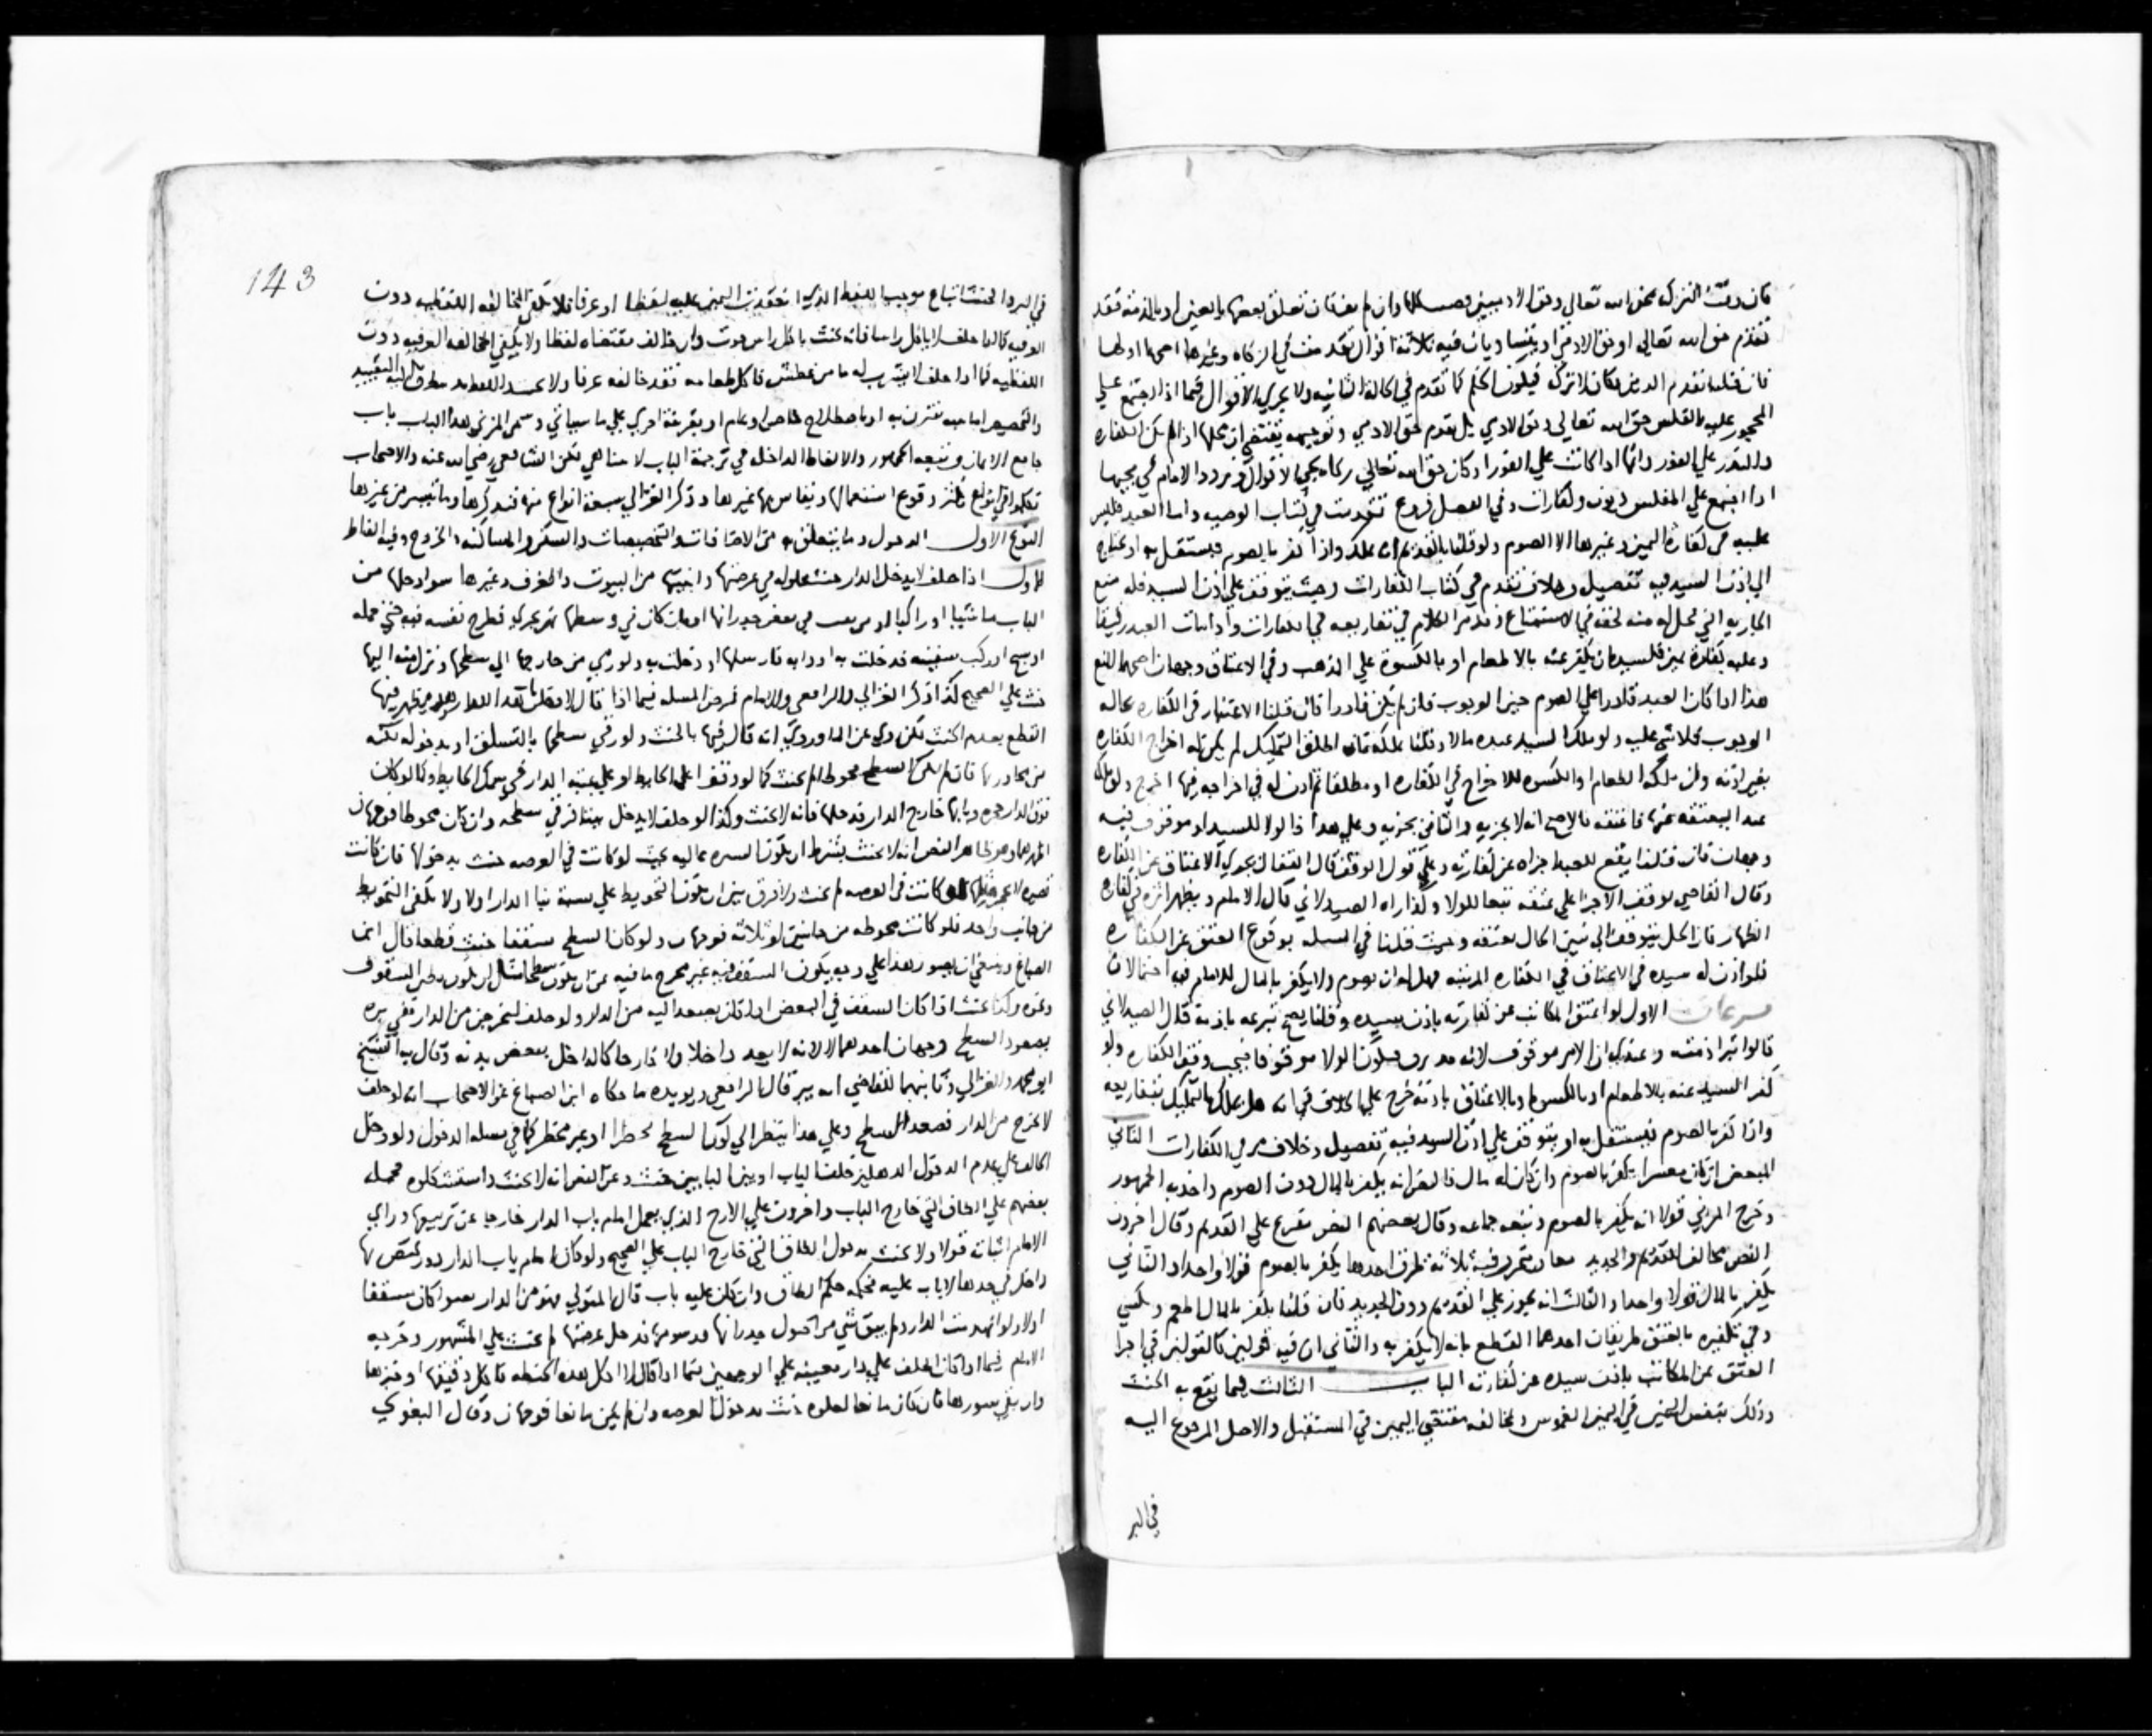 فان وفت التركة بحق الله تعالى وحق الادميين
تقدم حق الله تعالى او حق الادمي او يتساويان فيه ثلاثة اقوال تقدمت في الزكاة وغيرها اصحها اولها
فان قلنا تقدم الدين فكان لا تركة فيكون الحكم كما تقدم في الحالة الثانية ولا يجري الاقوال فيما اذا اجتمع علي
المحجور عليه بالفلس حق الله تعالى وحق الادمي بل تقدم حق الادمي وتوجيهه يقتضي ان محلها اذا لم تكن الكفارة
والنذر علي الفور واما اذا كانت علي الفور او كان حق الله تعالى زكاه يجي الاقوال وتردد الامام في مجيها
اذا اجتمع علي المفلس ديون وكفارات وفي الفصل فروع تقدمت في كتاب الوصيه واما العبد فليس
عليه في كفارة اليمين وغيرها الا الصوم ولو قلنا بالقديم انه يملك واذا كفر بالصوم فيستقل به او يحتاج
الى اذن السيد فيه تفصيل وخلاف تقدم في كتاب الكفارات وحيث يتوقف علي اذن السيد فله منع
الجاريه التي تحل له منه لحقه في الاستمتاع وقد مر الكلام في تفاريعه في الكفارات واذا مات العبد رقيقا
وعليه كفارة يمين فلسيده ان يكفر عنه بالاطعام او بالكسوة علي المذهب وفي الاعتاق وجهان اصحهما المنع
هذا اذا كان العبد قادرا علي الصوم حين الوجوب فان لم يكن قادرا فان قلنا الاعتبار في الكفاره بحاله
الوجوب فلا شي عليه ولو ملك السيد عبده مالا وقلنا يملكه فان اطلق التمليك لم يكن له اخراج الكفاره
بغير اذنه وان ملكه الطعام والكسوه للاخراج في الكفاره او مطلقا ثم اذن له في اخراجه فيها اخرج ولو ملكه
عبدا ليعتقه عنها فاعتقه فالاصح انه لا يجزيه والثاني يجزيه وعلي هذا فالولا للسيد او موقوف فيه
وجهان فان قلنا يقع للعبد اجزاه عن كفارته وعلي قول الوقف قال القفال يجزي الاعتاق عن الكفاره
وقال القاضي توقف الاجزا علي عتقه تبعا للولا وكذا راه الصيدلاني قال الامام ويظهر اثره في كفارة
الظهار فان الحل يتوقف الى تبين الحال بعتقه وحيث قلنا في المسله بوقوع العتق عن الكفاره
فلو اذن له سيده في الاعتاق في الكفاره المرتبه فهل له ان يصوم ولا يكفر بالمال للامام فيه احتمالان
فرعان الاول لو اعتق المكاتب عن كفارته باذن سيده وقلنا يصح تبرعه باذنه قال الصيدلاني
قالوا تبرا ذمته وعندي ان الامر موقوف لانه قد يرق فيكون الولا موقوفا فيجب وقف الكفاره ولو
كفر السيد عنه بالاطعام او بالكسوه او بالاعتاق باذنه خرج علي الخلاف في انه هل يملك بالتمليك بتفاريعه
واذا كفر بالصوم فيستقل به او يتوقف علي اذن السيد فيه تفصيل وخلاف مر في الكفارات الثاني
المبعض ان كان معسرا يكفر بالصوم وان كان له مال فالنص انه يكفر بالمال دون الصوم واخذ به الجمهور
وخرج المزني قولا انه يكفر بالصوم وتبعه جماعه وقال بعضهم النص تفريع علي القديم وقال اخرون
النص مخالف للقديم والجديد معا فتقرر فيه ثلاثة طرق احدها يكفر بالصوم قولا واحدا والثاني
يكفر بالمال قولا واحدا والثالث انه يجوز علي القديم دون الجديد فان قلنا يكفر بالمال اطعم وكسي
وفي تكفيره بالعتق طريقان احدهما القطع بانه لا يكفر به والثاني ان فيه قولين كالقولين في اجزا
العتق عن المكاتب باذن سيده عن كفارته الباب الثالث فيما يقع به الحنث
وذلك بنفس اليمين في اليمين الغموس وبمخالفه مقتضي اليمين في المستقبل والاصل المرجوع اليه
في البر
143
في البر والحنث اتباع موجب اللفظ الذي انعقدت اليمين عليه لفظا او عرفا فلا تكفي المخالفه اللفظيه دون
العرفيه كما لو حلف لا ياكل راسا فانه يحنث باكل راس حوت وان خالف مقتضاه لفظا ولا يكفي المخالفه العرفيه دون
اللفظيه كما اذا حلف لا يشرب له ما من عطش فاكل طعامه فقد خالفه عرفا ولا يحنث
والتخصيص اما بنيه تقترن به او باصطلاح خاص او عام او بقرينة اخري علي ما سياتي وسمى المزني هذا الباب باب
جامع الايمان وتبعه الجمهور والالفاظ الداخله في ترجمة الباب لا تتناهي لكن الشافعي رضي الله عنه والاصحاب
تكلموا في انواع يكثر وقوع استعمالها ويقاس بها غيرها وذكر الغزالي سبعة انواع منه فنذكرها وما تيسر من غيرها
النوع الاول الدخول وما يتعلق به من الاضافات والتخصيصات والسكني والمساكنه والخروج وفيه الفاظ
الاول اذا حلف لا يدخل الدار حنث بحلوله في عرصتها وابنيتها من البيوت والغرف وغيرها سوا دخلها من
الباب ماشيا او راكبا او من نقب في بعض جدرانها او كان في وسطها نهر يجري فطرح نفسه فيه حتي حمله
او سبح او ركب سفينه فدخلت به او دابه فارسلها او دخلت به ولو رمي من خارجها الى سطحها ونزل منه اليها
حنث علي الصحيح كذا ذكر الغزالي والرافعي والامام فرض المسله فيما اذا قال لا دخلت
القطع بعدم الحنث لكن روي عن الماوردي انه قال فيها بالحنث ولو رقي سطحها بالتسلق او بدخوله لكنه
من مجاورتها فان لم يكن السطح محوطا لم يحنث كما لو وقف علي الحايط او علي عتبه الدار في سمك الحايط وكما لو كان
فوق الدار حجره وبابها خارج الدار فدخلها فانه لا يحنث وكذا لو حلف لا يدخل بيتا فرقي سطحه وان كان محوطا فوجهان
اظهرهما وهو ظاهر النص انه لا يحنث بشرط ان تكون السترة عاليه بحيث لو كانت في العرصه حنث بدخولها فان كانت
قصيره لو كانت في العرصه لم يحنث ولا فرق بين ان يكون التحويط علي نسبة بنا الدار اولا ولا يكفي التحويط
من جانب واحد فلو كانت محوطه من جانبين او ثلاثه فوجهان ولو كان السطح مسقفا حنث قطعا قال ابن
الصباغ
وغيره وكذا يحنث اذا كان السقف في البعض اذا كان يصعد اليه من الدار ولو حلف ليخرجن من الدار ففي بره
بصعود السطح وجهان احدهما لا لانه لا يعد داخلا ولا خارجا كالداخل ببعض بدنه وقال به الشيخ
ابو محمد والغزالي وثانيهما للقاضي انه يبر قال الرافعي ويويده ما حكاه ابن الصباغ عن الاصحاب انه لو حلف
لا يخرج من الدار فصعد السطح وعلي هذا ينظر الي كون السطح محوطا او غير محوط كما في مسله الدخول ولو دخل
الحالف علي عدم الدخول الدهليز خلف الباب او بين البابين حنث وعن النص انه لا يحنث واستشكلوه فحمله
بعضهم علي الطاق التي خارج الباب واخرون علي الازج الذي يعمل امام باب الدار خارجا عن تربيعها وراي
الامام اثباته قولا ولا يحنث بدخول الطاق التي خارج الباب علي الصحيح ولو كان امام باب الدار
داخل في حدها لا باب عليه فحكمه حكم الطاق وان كان عليه باب قال المتولي فهو من الدار سوا كان مسقفا
اولا ولو انهدمت الدار ولم يبق شي من اصول جدرانها ورسومها فدخل عرصتها لم يحنث علي المشهور وخرجه
الامام فيما اذا كان الحلف علي دار معينه علي الوجهين فيما اذا قال لا اكل هذه الحنطه فاكل دقيقها او خبزها
وان بقي سورها فان كان مانعا للعلوه حنث بدخول العرصه وان لم يكن مانعا فوجهان وقال البغوي